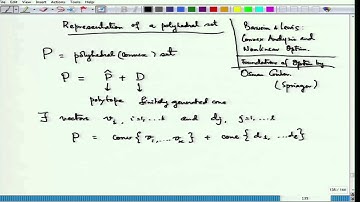 Representation of a polyhedral set
P = polyhedral (convex) set
P = P̂ + D
polytope finitely generated cone
∃ vectors v_i, i=1,... k and d_j, j=1,...l
P = conv{v_1,... v_k} + cone{d_1, ...d_l}
Borwein & Lewis:
Convex Analysis and
Nonlinear Optim.
Foundations of Optim by
Osman Güler.
(Springer)